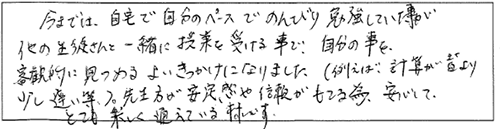 今までは、自宅で自分のペースでのんびり勉強していた事が
他の生徒さんと一緒に授業を受ける事で、自分の事を、
客観的に見つめるよいきっかけになりました。(例えば、計算が昔より
少し遅い等)。先生方が安定感や信頼がもてる為、安心して、
とても楽しく通えている様です。